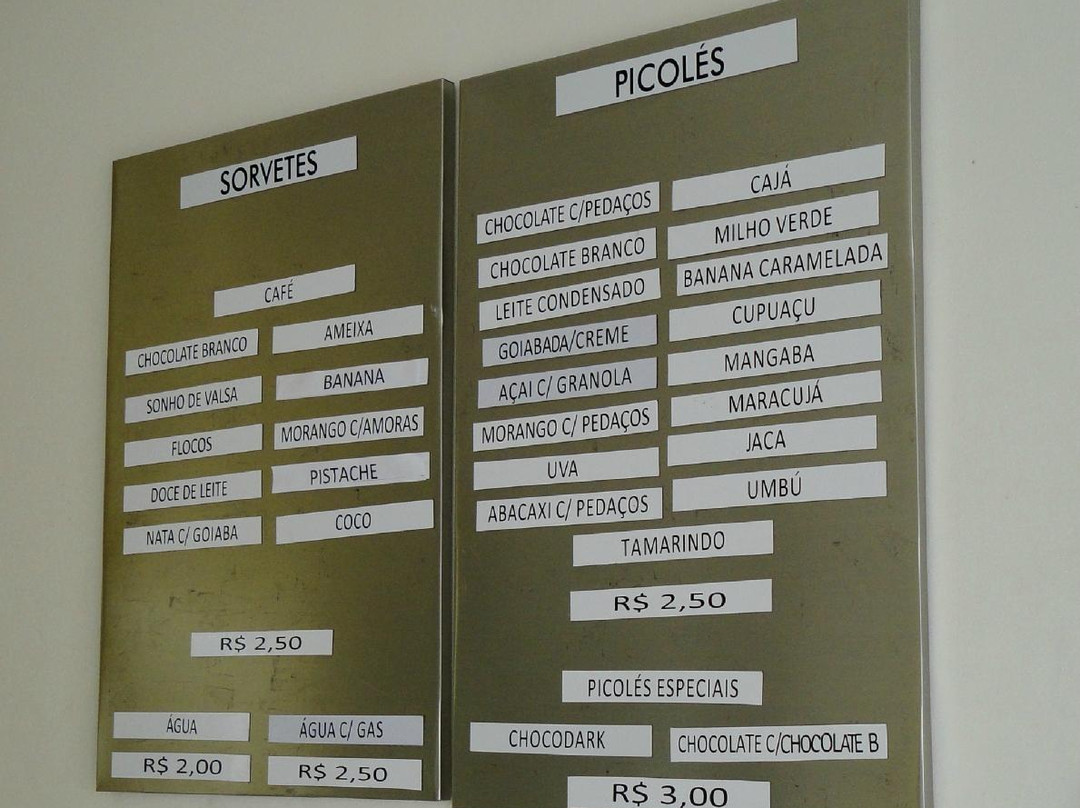 SORVETES
CAFÉ
CHOCOLATE BRANCO
AMEIXA
SONHO DE VALSA
BANANA
FLOCOS
MORANGO C/AMORAS
DOCE DE LEITE
PISTACHE
NATA C/ GOIABA
COCO
R$ 2,50
ÁGUA
ÁGUA C/ GAS
R$ 2,00
R$ 2,50
PICOLÉS
CHOCOLATE C/PEDAÇOS
CAJÁ
CHOCOLATE BRANCO
MILHO VERDE
LEITE CONDENSADO
BANANA CARAMELADA
GOIABADA/CREME
CUPUAÇU
AÇAI C/ GRANOLA
MANGABA
MORANGO C/ PEDAÇOS
MARACUJÁ
UVA
JACA
ABACAXI C/ PEDAÇOS
UMBÚ
TAMARINDO
R$ 2,50
PICOLÉS ESPECIAIS
CHOCODARK
CHOCOLATE C/CHOCOLATE B
R$ 3,00